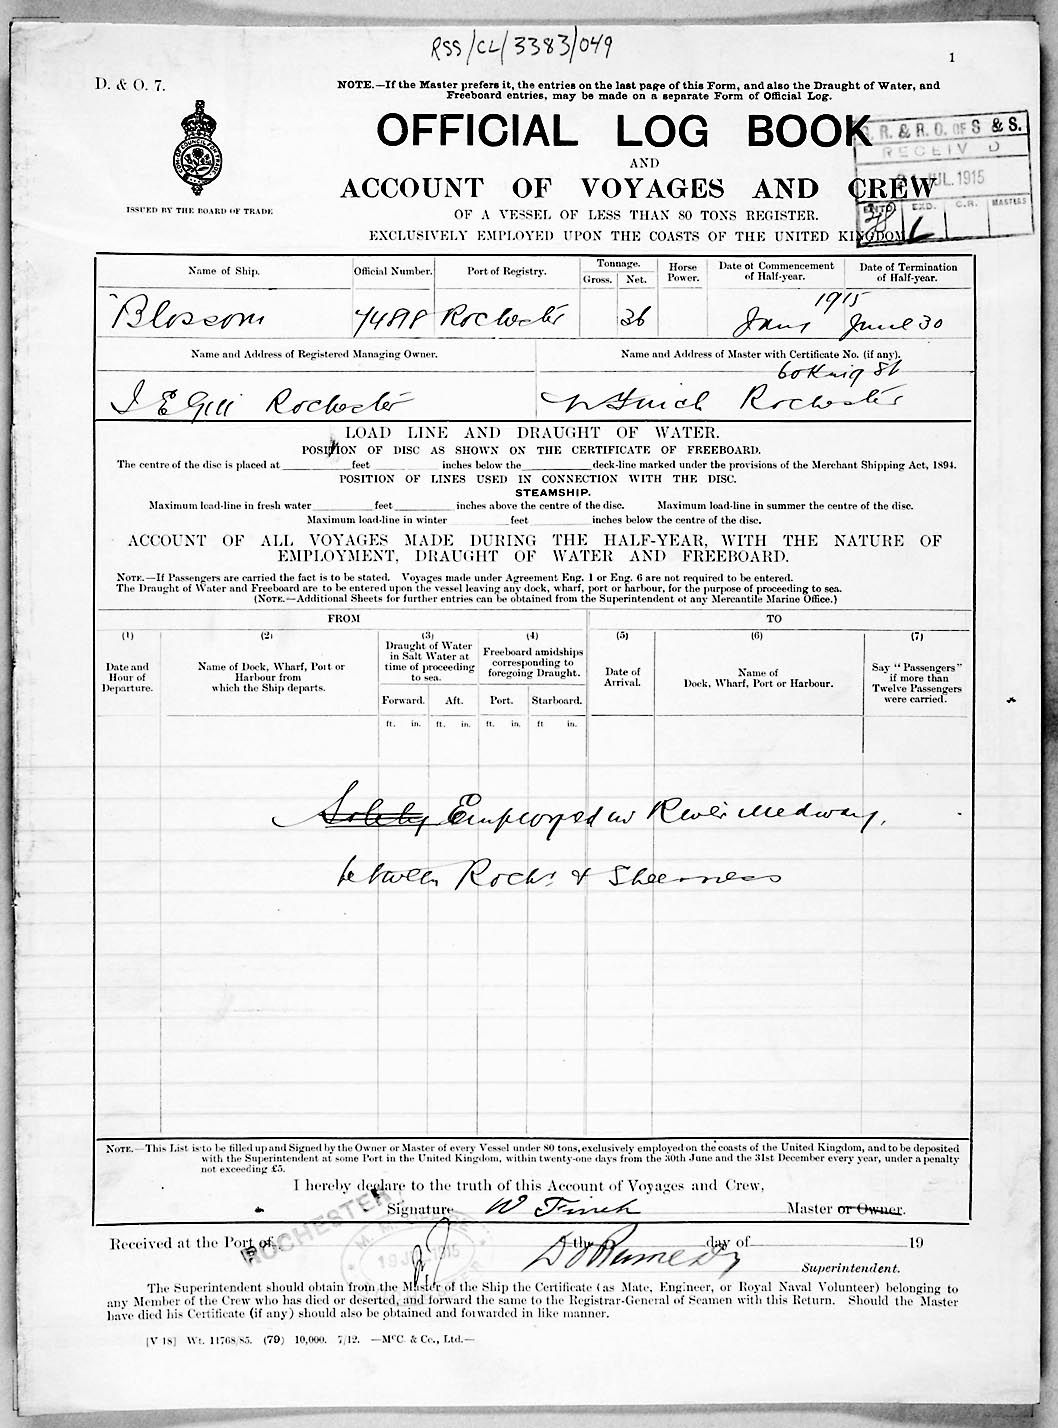 RSS/CL/3383/049
1
D. & O. 7.
NOTE.—If the Master prefers it, the entries on the last page of this Form, and also the Draught of Water, and
Freeboard entries, may be made on a separate Form of Official Log.
OFFICIAL LOG BOOK
AND
ACCOUNT OF VOYAGES AND CREW
OF A VESSEL OF LESS THAN 80 TONS REGISTER.
EXCLUSIVELY EMPLOYED UPON THE COASTS OF THE UNITED KINGDOM
ISSUED BY THE BOARD OF TRADE
R. & R. O. OF S & S.
RECEIV D
JUL 1915
EXD. C.R. MASTERS
Name of Ship. Official Number. Port of Registry. Tonnage. Gross. Net. Horse Power. Date of Commencement of Half-year. Date of Termination of Half-year.
1915
Blossom 74818 Rochester 36 Jany June 30
Name and Address of Registered Managing Owner. Name and Address of Master with Certificate No. (if any).
60 King St
J E Gill Rochester W Finch Rochester
LOAD LINE AND DRAUGHT OF WATER.
POSITION OF DISC AS SHOWN ON THE CERTIFICATE OF FREEBOARD.
The centre of the disc is placed at feet inches below the deck-line marked under the provisions of the Merchant Shipping Act, 1894.
POSITION OF LINES USED IN CONNECTION WITH THE DISC.
STEAMSHIP.
Maximum load-line in fresh water feet inches above the centre of the disc. Maximum load-line in summer the centre of the disc.
Maximum load-line in winter feet inches below the centre of the disc.
ACCOUNT OF ALL VOYAGES MADE DURING THE HALF-YEAR, WITH THE NATURE OF
EMPLOYMENT, DRAUGHT OF WATER AND FREEBOARD.
NOTE.—If Passengers are carried the fact is to be stated. Voyages made under Agreement Eng. 1 or Eng. 6 are not required to be entered.
The Draught of Water and Freeboard are to be entered upon the vessel leaving any dock, wharf, port or harbour, for the purpose of proceeding to sea.
(NOTE.—Additional Sheets for further entries can be obtained from the Superintendent of any Mercantile Marine Office.)
FROM TO
(1) Date and Hour of Departure.
(2) Name of Dock, Wharf, Port or Harbour from which the Ship departs.
(3) Draught of Water in Salt Water at time of proceeding to sea.
Forward. Aft.
(4) Freeboard amidships corresponding to foregoing Draught.
Port. Starboard.
(5) Date of Arrival.
(6) Name of Dock, Wharf, Port or Harbour.
(7) Say "Passengers" if more than Twelve Passengers were carried.
ft. in. ft. in. ft. in. ft in.
Solely Employed in River Medway,
between Rochr & Sheerness
NOTE.—This List is to be filled up and Signed by the Owner or Master of every Vessel under 80 tons, exclusively employed on the coasts of the United Kingdom, and to be deposited
with the Superintendent at some Port in the United Kingdom, within twenty-one days from the 30th June and the 31st December every year, under a penalty
not exceeding £5.
I hereby declare to the truth of this Account of Voyages and Crew,
Signature W Finch Master or Owner.
ROCHESTER
19 JUL 1915
Received at the Port of the day of 19
Superintendent.
The Superintendent should obtain from the Master of the Ship the Certificate (as Mate, Engineer, or Royal Naval Volunteer) belonging to
any Member of the Crew who has died or deserted, and forward the same to the Registrar-General of Seamen with this Return. Should the Master
have died his Certificate (if any) should also be obtained and forwarded in like manner.
[V 18] Wt. 11768/85. (79) 10,000. 7/12. —McC. & Co., Ltd.—